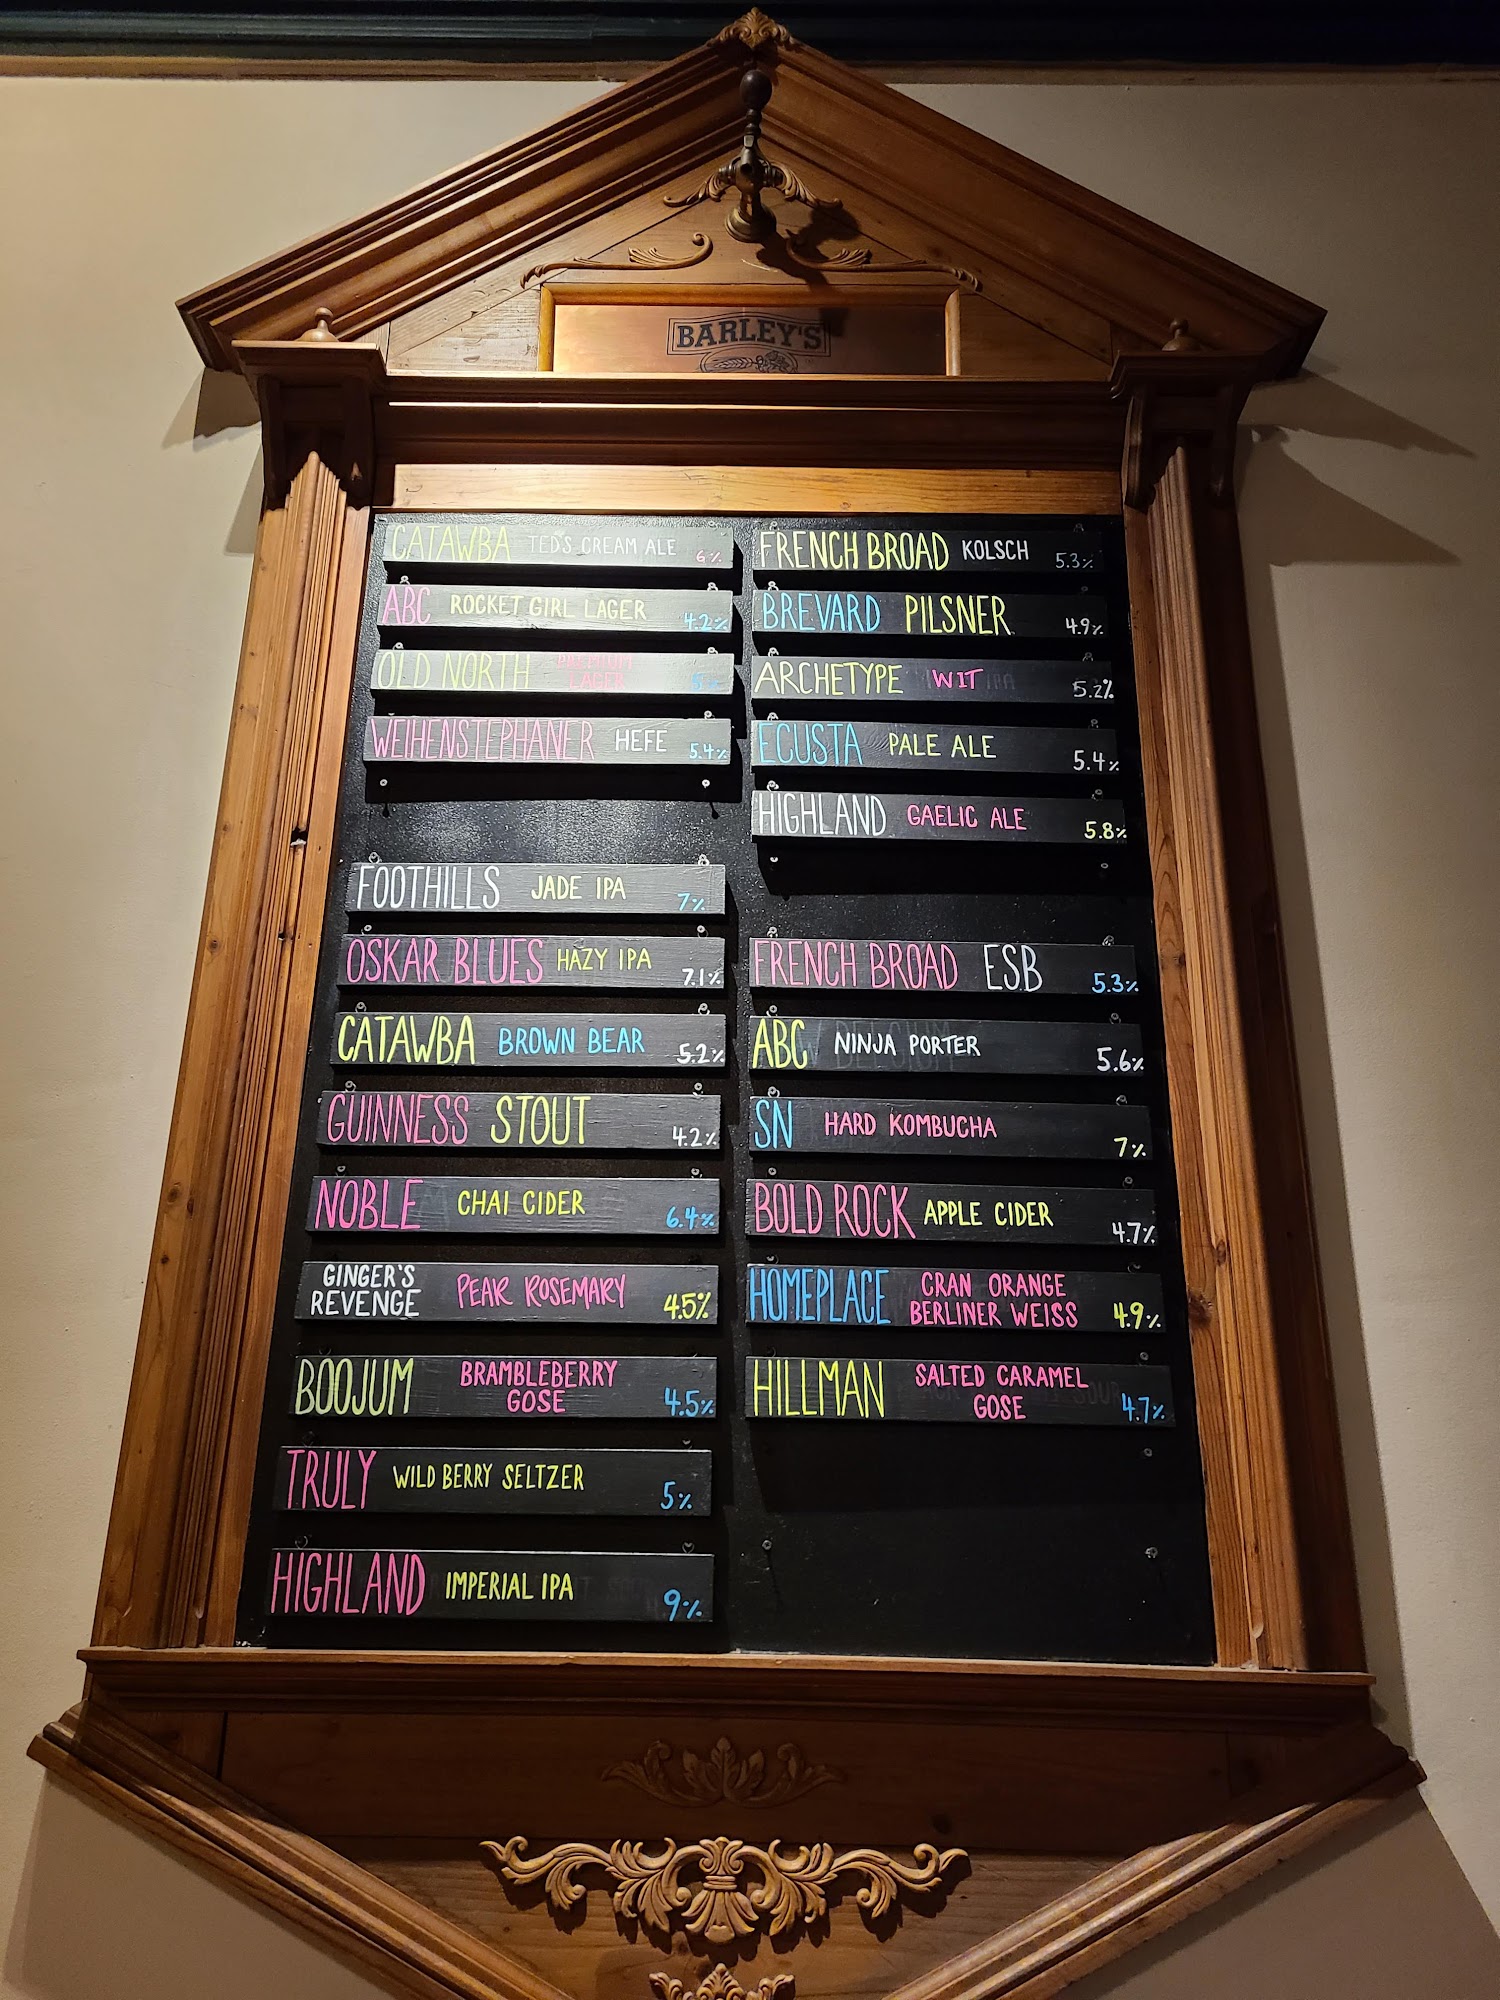 BARLEY'S
CATAWBA TED'S CREAM ALE 6%
ABC ROCKET GIRL LAGER 4.2%
OLD NORTH PREMIUM
LAGER 5%
WEIHENSTEPHANER HEFE 5.4%
FOOTHILLS JADE IPA 7%
OSKAR BLUES HAZY IPA 7.1%
CATAWBA BROWN BEAR 5.2%
GUINNESS STOUT 4.2%
NOBLE CHAI CIDER 6.4%
GINGER'S
REVENGE PEAR ROSEMARY 4.5%
BOOJUM BRAMBLEBERRY
GOSE 4.5%
TRULY WILD BERRY SELTZER 5%
HIGHLAND IMPERIAL IPA 9%
FRENCH BROAD KOLSCH 5.3%
BREVARD PILSNER 4.9%
ARCHETYPE WIT 5.2%
ECUSTA PALE ALE 5.4%
HIGHLAND GAELIC ALE 5.8%
FRENCH BROAD ESB 5.3%
ABC NINJA PORTER 5.6%
SN HARD KOMBUCHA 7%
BOLD ROCK APPLE CIDER 4.7%
HOMEPLACE CRAN ORANGE
BERLINER WEISS 4.9%
HILLMAN SALTED CARAMEL
GOSE 4.7%